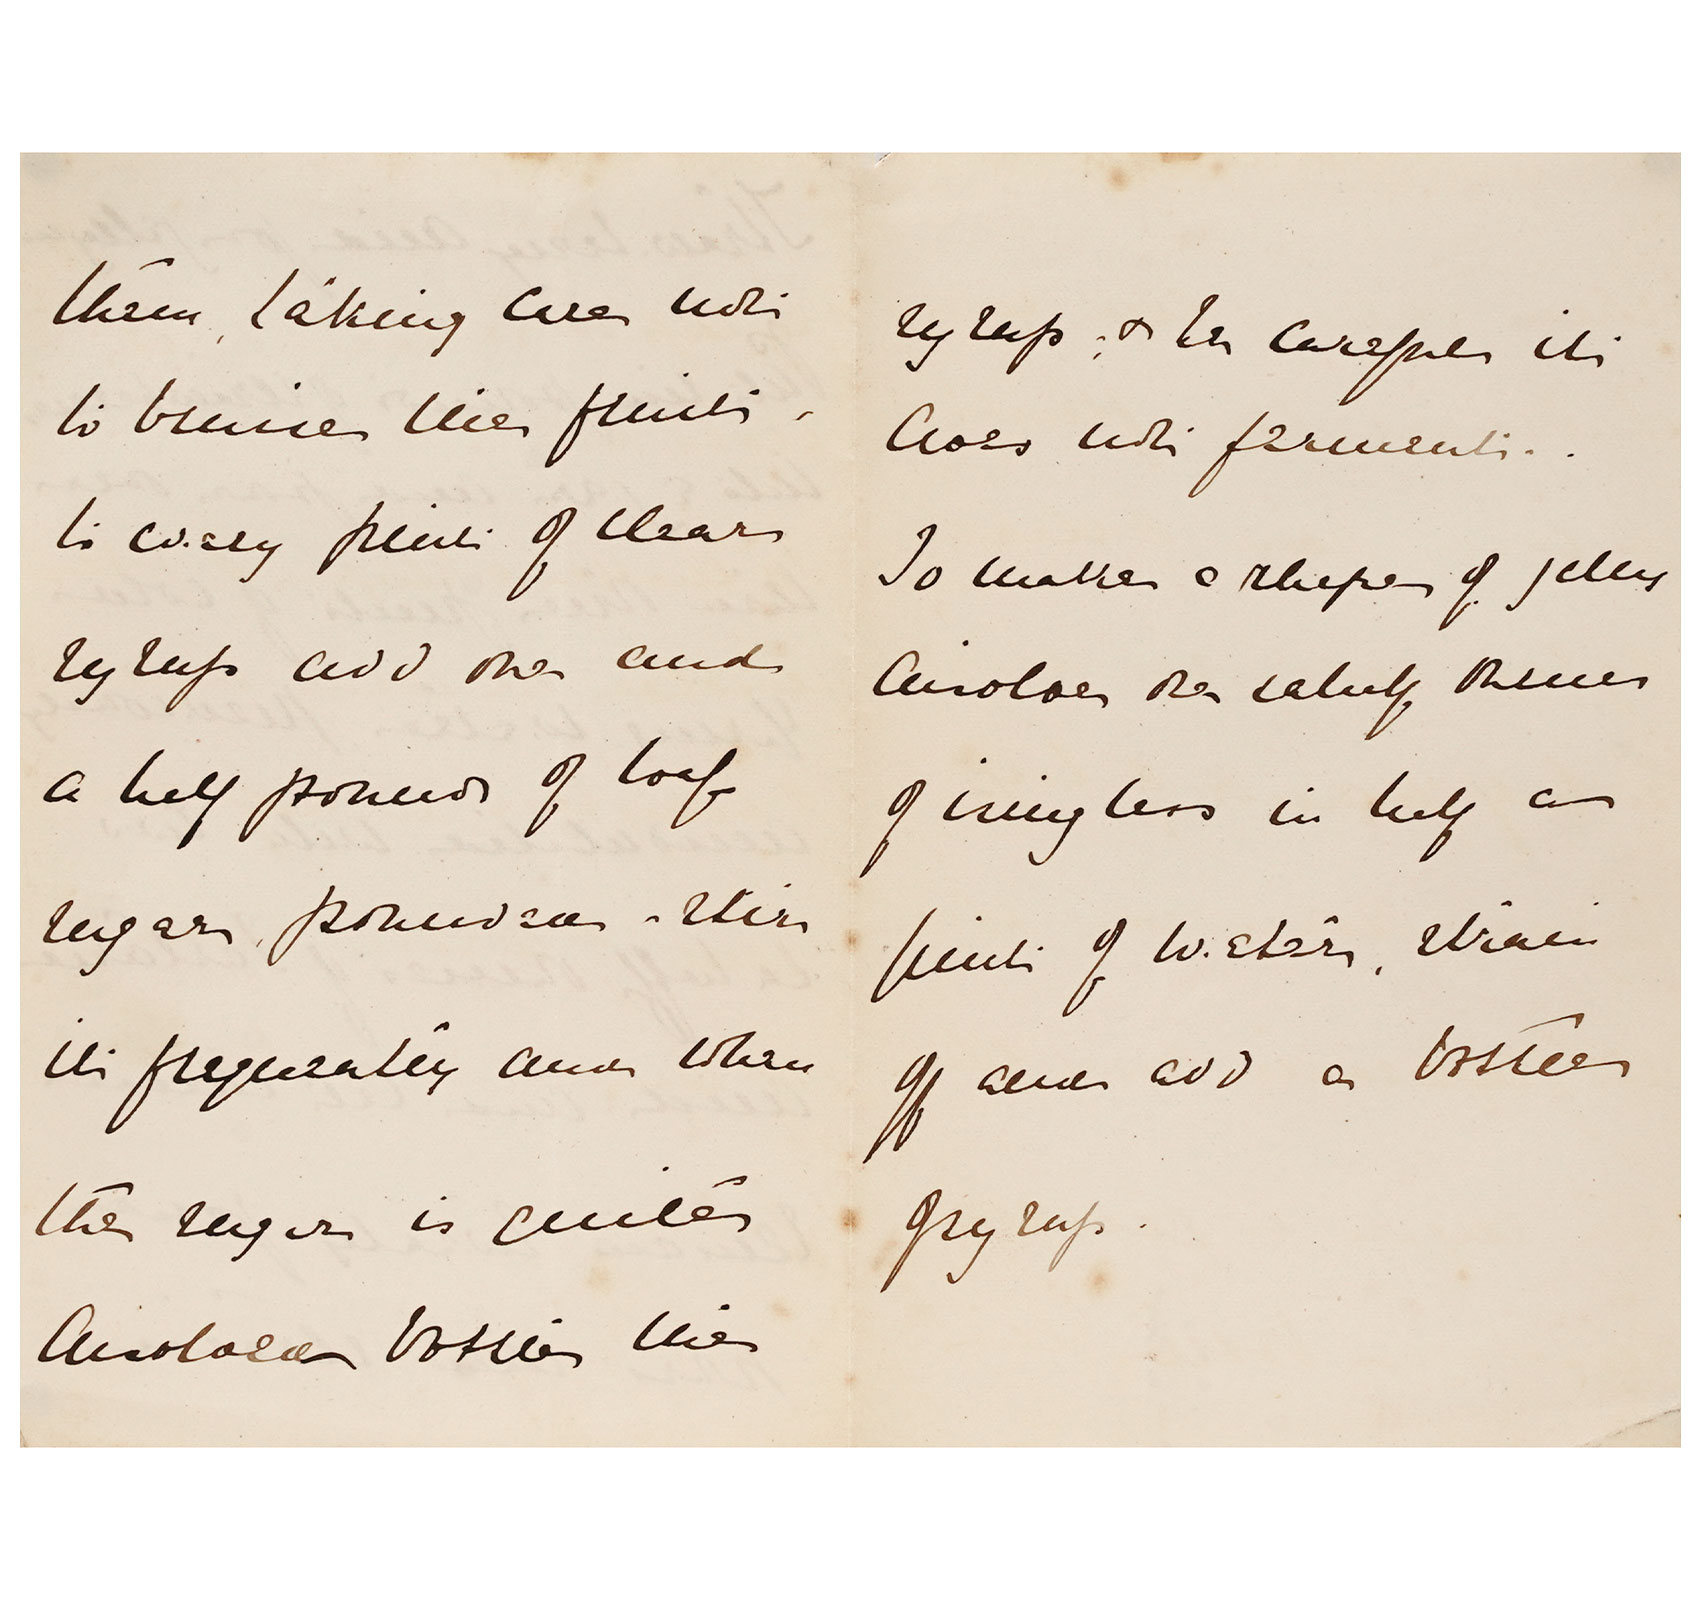 them, taking care not
to bruise the fruit,
to every pint of clear
syrup add one and
a half pounds of loaf
sugar, pounded - stir
it frequently and when
the sugar is quite
disolved bottle the
syrup; & be careful it
does not ferment..
To make a shape of jelly
disolve one & half ounce
of isinglass in half a
pint of water, strain
off and add a bottle
of syrup.